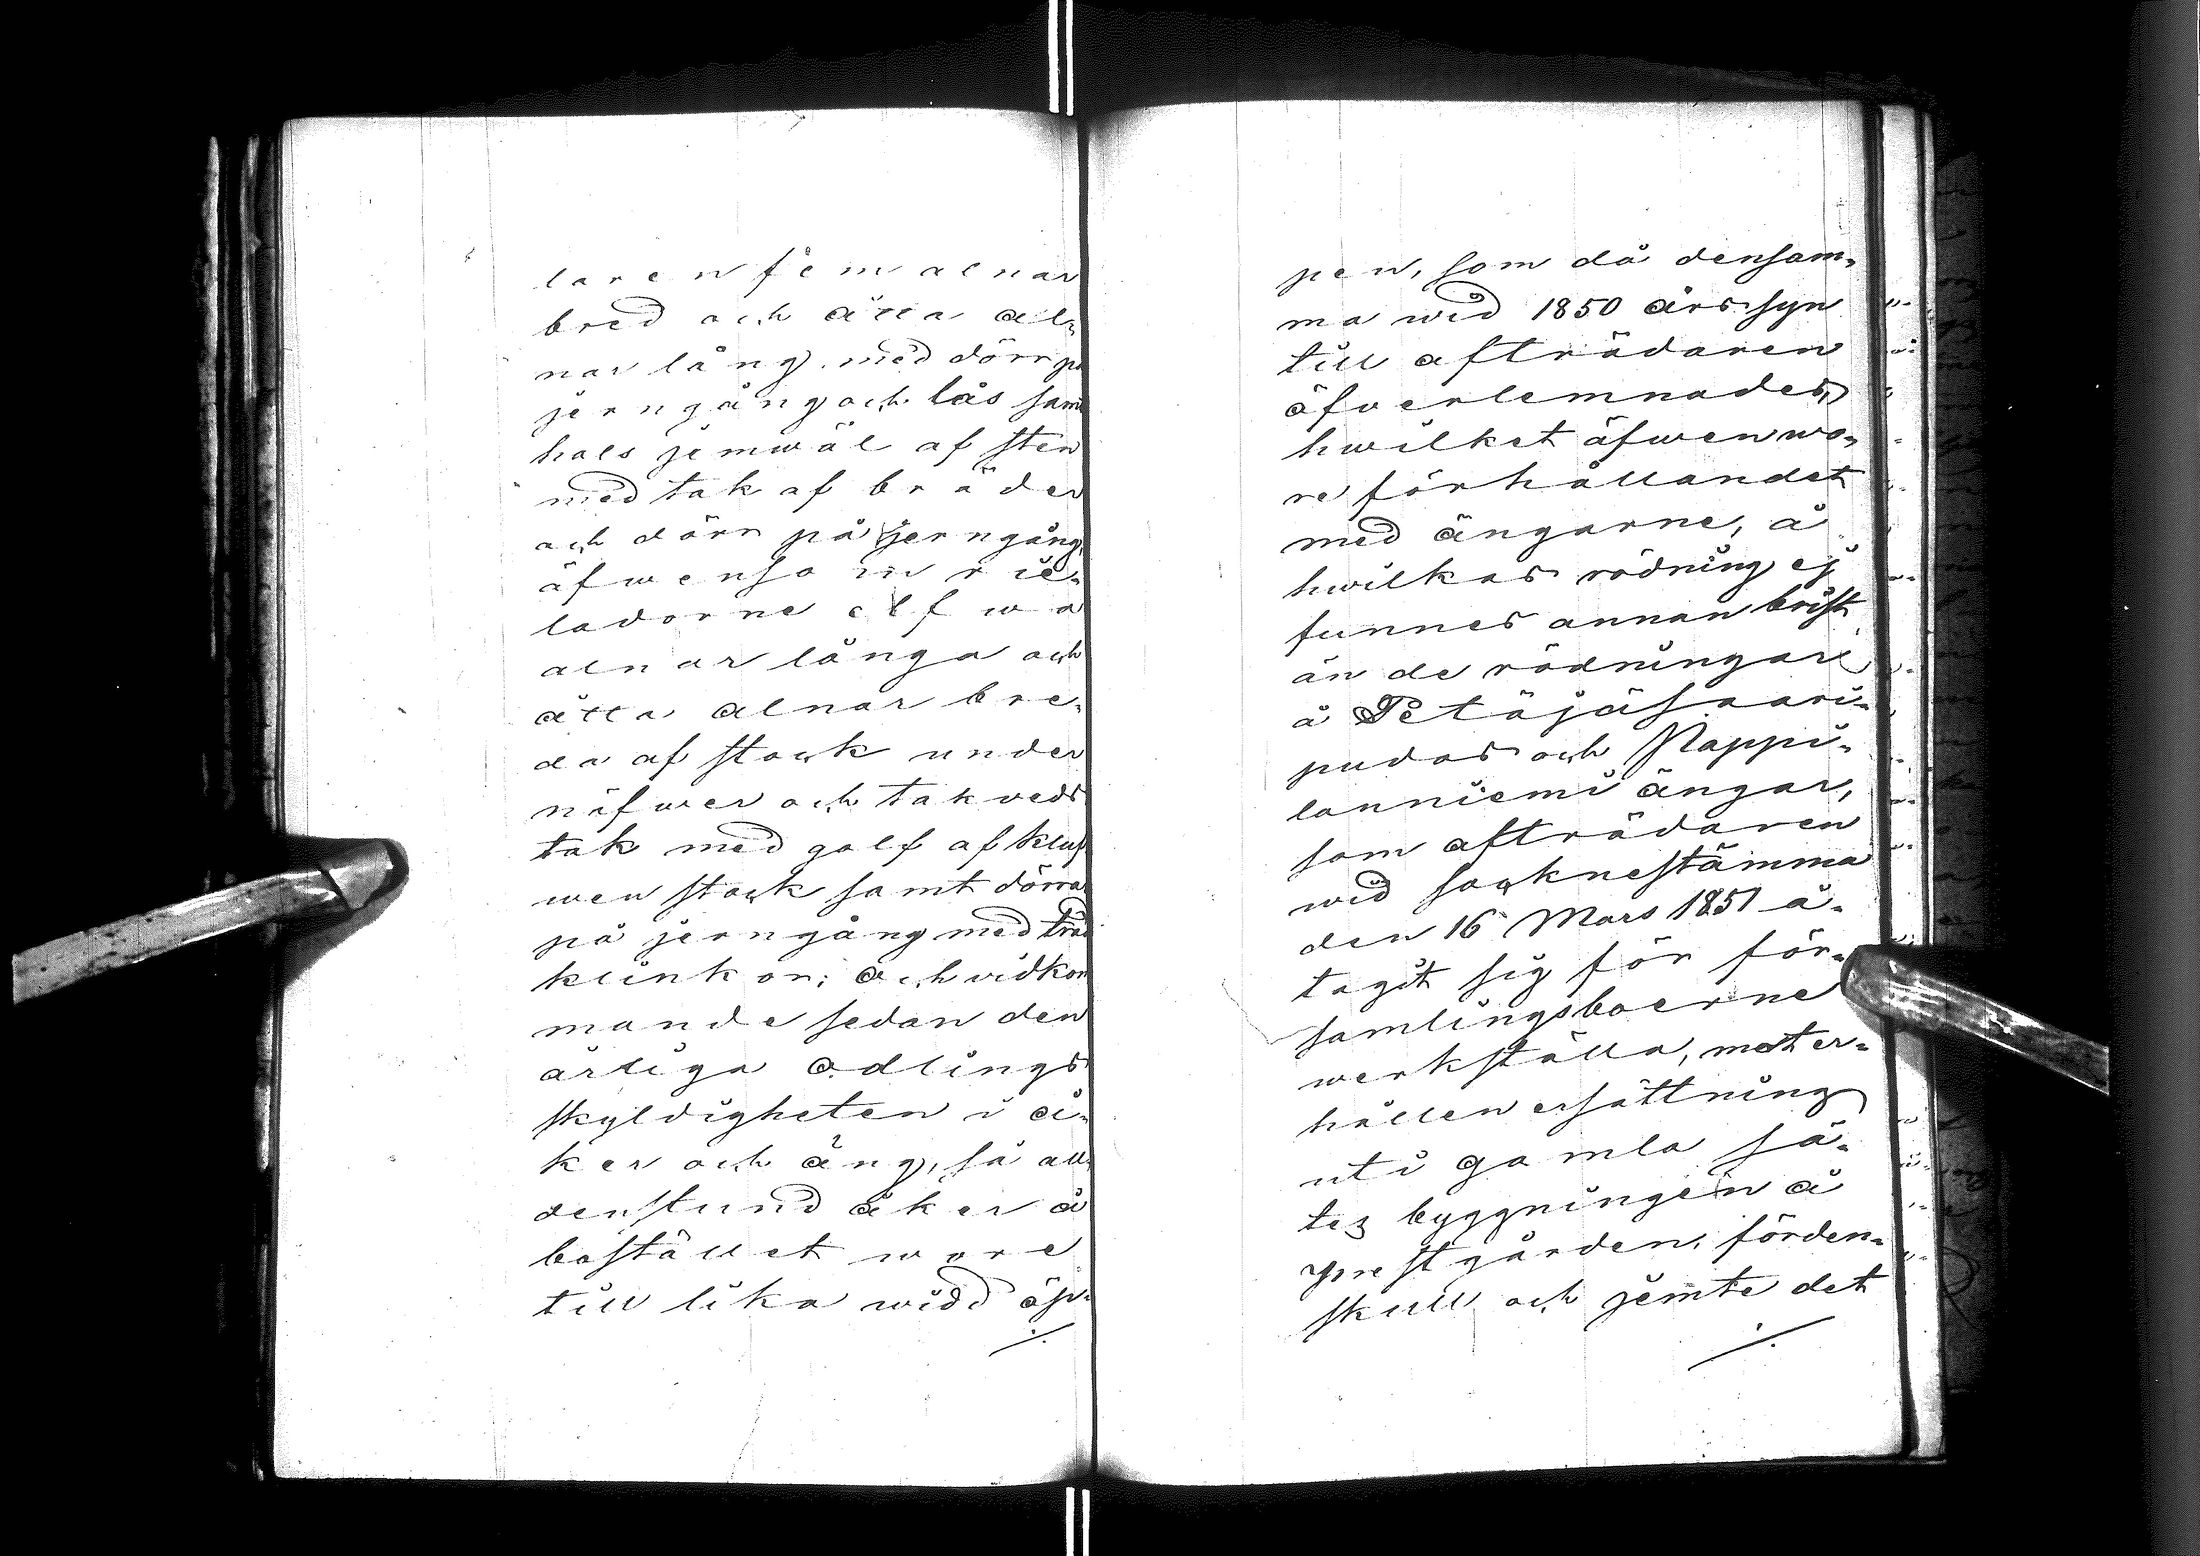 laren fem alnar
bred och åtta al-
nar lång, med dörr på
jerngång och lås samt
hals jemwäl af sten
med tak af bräder
och dörr på jerngång,
äfwensom rie-
ladorne elfwa
alnar långa och
åtta alnar bre-
da af stock under
näfwer och takveds
tak med golf af kluf
wen stock samt dörrar
på jerngång med träd
klinkor; och vidkom
mande sedan den
årliga odlings
skyldigheten i å-
ker och äng, så all-
denstund åker å
bostället wore
till lika widd öp-
./.
pen, som då densam-
ma wid 1850 års syn
till afträdaren
öfwerlemnades,
hwilket äfwen wo-
re förhållandet
med ängarne, å
hwilkas rödning ej
funnes annan brist
än de rödningar
å Petäjäsaari-
pudas och Nappi-
lanniemi ängar,
som afträdaren
wid socknestämma
den 16 Mars 1851 å-
tagit sig för för-
samlingsboerne
werkställa, mot er-
hållen ersättning
uti gamla sä-
tes byggningen å
prestgården, förden-
skull och jemte det
./.